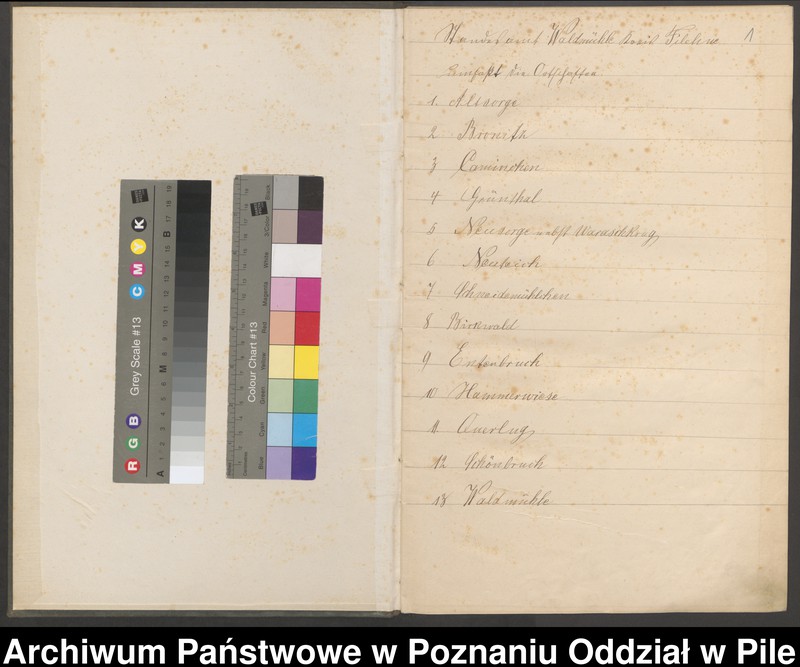 Standesamt Waldmühle Kreis Filehne 1
umfaßt die Ortschaften
1. Altsorge
2 Bronitz
3 Caminchen
4 Grünthal
5 Neusorge nebst
6 Neuteich
7 Schneidemühlchen
8 Birkwald
9 Entenbruch
10 Hammerwiese
11 Querlug
12 Schönbruch
13 Waldmühle
R G B Grey Scale #13 C M Y K
A 1 2 3 4 5 6 M 8 9 10 11 12 13 14 15 B 17 18 19
Colour Chart #13
Blue Cyan Green Yellow Red Magenta White 3/Color Black
Archiwum Państwowe w Poznaniu Oddział w Pile